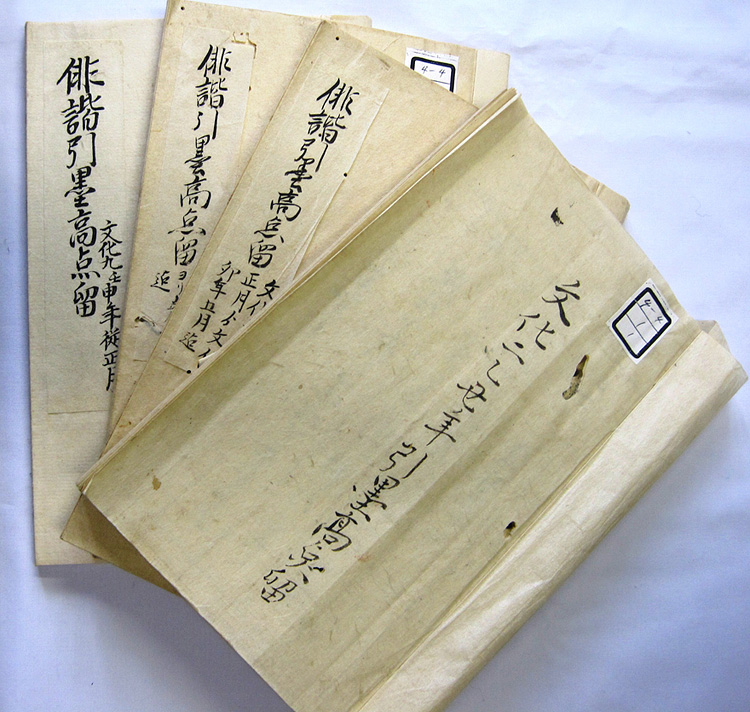 俳諧引墨高点留
文化九壬申年従正月
俳諧引墨高点留
ヨリ
迄
俳諧引墨高点留
文化
正月ゟ文
卯年五月迄
4-4
文化二乙丑年引墨高点留
4-4
1
1